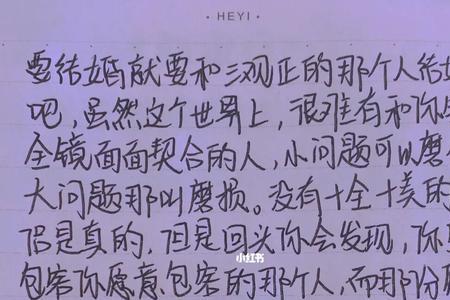 · HEYI ·
要结婚就要和三观正的那个人结
吧，虽然这个世界上，很难有和你
全镜面面契合的人，小问题可以磨
大问题那叫磨损。没有十全十美的
侣是真的，但是回头你会发现，你
小红书
包容你愿意包容的那个人，而那份